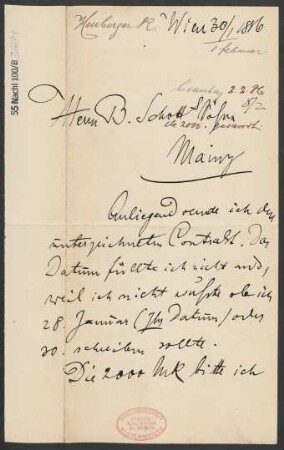 Heuberger R.
Wien 30/1 1886
1 Februar
55 Nachl 100/B
2.2.86
8/2
Herrn B. Schott Söhne
die 2000.- gesandt
Mainz
Anliegend sende ich den
unterzeichneten Contrakt. Das
Datum füllte ich nicht aus,
weil ich nicht wußte ob ich
28. Januar (Ihr Datum) oder
30. schreiben sollte.
Die 2000 Mk bitte ich